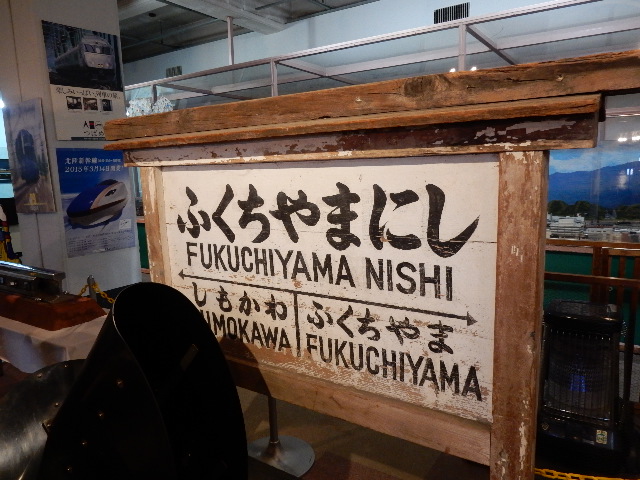 ふくちやまにし
FUKUCHIYAMA NISHI
しもかわ
UMOKAWA
ふくちやま
FUKUCHIYAMA
北陸新幹線
2015年3月14日開業